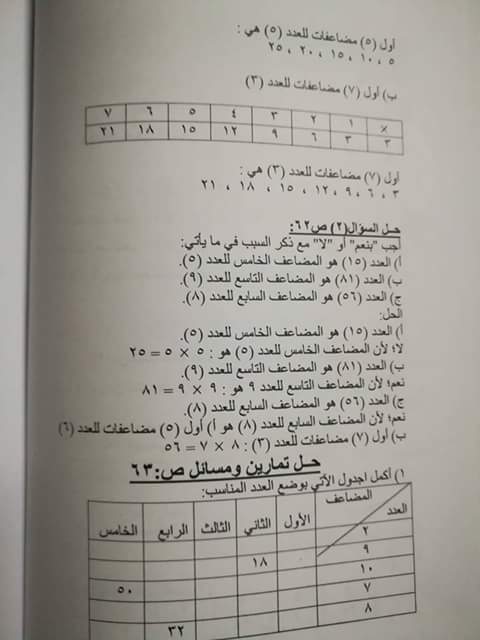 أول (٥) مضاعفات للعدد (٥) هي :
٥ ، ١٠ ، ١٥ ، ٢٠ ، ٢٥
ب) أول (٧) مضاعفات للعدد (٣)
× ١ ٢ ٣ ٤ ٥ ٦ ٧
٣ ٣ ٦ ٩ ١٢ ١٥ ١٨ ٢١
أول (٧) مضاعفات للعدد (٣) هي :
٣ ، ٦ ، ٩ ، ١٢ ، ١٥ ، ١٨ ، ٢١
حل السؤال(٢) ص٦٢:
أجب "بنعم" أو "لا" مع ذكر السبب في ما يأتي:
أ) العدد (١٥) هو المضاعف الخامس للعدد (٥).
ب) العدد (٨١) هو المضاعف التاسع للعدد (٩).
ج) العدد (٥٦) هو المضاعف السابع للعدد (٨).
الحل:
أ) العدد (١٥) هو المضاعف الخامس للعدد (٥).
لا؛ لأن المضاعف الخامس للعدد (٥) هو : ٥ × ٥ = ٢٥
ب) العدد (٨١) هو المضاعف التاسع للعدد (٩).
نعم؛ لأن المضاعف التاسع للعدد ٩ هو : ٩ × ٩ = ٨١
ج) العدد (٥٦) هو المضاعف السابع للعدد (٨).
نعم؛ لأن المضاعف السابع للعدد (٨) هو أ) أول (٥) مضاعفات للعدد (٦)
ب) أول (٧) مضاعفات للعدد (٣): ٨ × ٧ = ٥٦
حل تمارين ومسائل ص:٦٣
١) أكمل اجدول الآتي بوضع العدد المناسب:
المضاعف العدد الأول الثاني الثالث الرابع الخامس
٢
٩ ١٨
١٠
٧ ٥٠
٨
٣٢